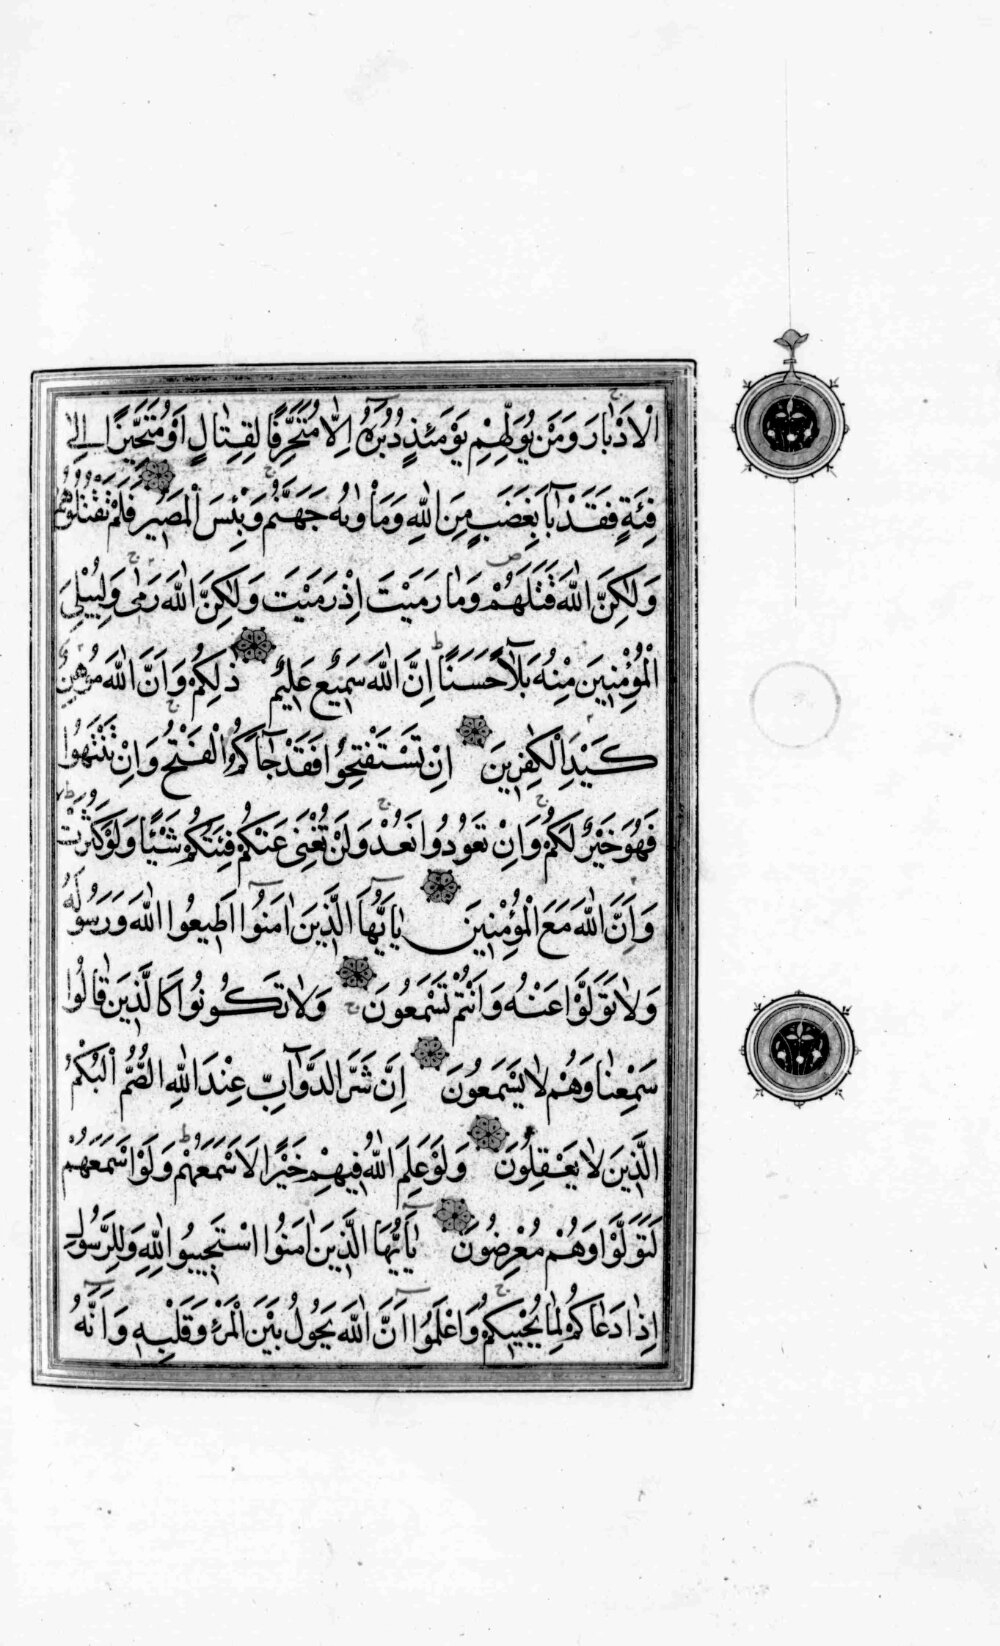 الْاَدْبَارَ وَمَنْ يُوَلِّهِمْ يَوْمَئِذٍ دُبُرَهُٓ اِلَّا مُتَحَرِّفًا لِقِتَالٍ اَوْ مُتَحَيِّزًا اِلٰى
فِئَةٍ فَقَدْ بَآءَ بِغَضَبٍ مِنَ اللّٰهِ وَمَأْوٰىهُ جَهَنَّمُ وَبِئْسَ الْمَصِيرُ فَلَمْ تَقْتُلُوهُمْ
وَلٰكِنَّ اللّٰهَ قَتَلَهُمْ وَمَا رَمَيْتَ اِذْ رَمَيْتَ وَلٰكِنَّ اللّٰهَ رَمٰى وَلِيُبْلِيَ
الْمُؤْمِنِينَ مِنْهُ بَلَآءً حَسَنًا اِنَّ اللّٰهَ سَمِيعٌ عَلِيمٌ ذٰلِكُمْ وَاَنَّ اللّٰهَ مُوهِنُ
كَيْدِ الْكٰفِرِينَ اِنْ تَسْتَفْتِحُوا فَقَدْ جَآءَكُمُ الْفَتْحُ وَاِنْ تَنْتَهُوا
فَهُوَ خَيْرٌ لَكُمْ وَاِنْ تَعُودُوا نَعُدْ وَلَنْ تُغْنِىَ عَنْكُمْ فِئَتُكُمْ شَيْئًا وَلَوْ كَثُرَتْ
وَاَنَّ اللّٰهَ مَعَ الْمُؤْمِنِينَ يٰٓاَيُّهَا الَّذِينَ اٰمَنُوٓا اَطِيعُوا اللّٰهَ وَرَسُولَهُ
وَلَا تَوَلَّوْا عَنْهُ وَاَنْتُمْ تَسْمَعُونَ وَلَا تَكُونُوا كَالَّذِينَ قَالُوا
سَمِعْنَا وَهُمْ لَا يَسْمَعُونَ اِنَّ شَرَّ الدَّوَآبِّ عِنْدَ اللّٰهِ الصُّمُّ الْبُكْمُ
الَّذِينَ لَا يَعْقِلُونَ وَلَوْ عَلِمَ اللّٰهُ فِيهِمْ خَيْرًا لَاَسْمَعَهُمْ وَلَوْ اَسْمَعَهُمْ
لَتَوَلَّوْا وَهُمْ مُعْرِضُونَ يٰٓاَيُّهَا الَّذِينَ اٰمَنُوا اسْتَجِيبُوا لِلّٰهِ وَلِلرَّسُولِ
اِذَا دَعَاكُمْ لِمَا يُحْيِيكُمْ وَاعْلَمُوٓا اَنَّ اللّٰهَ يَحُولُ بَيْنَ الْمَرْءِ وَقَلْبِهِ وَاَنَّهُٓ